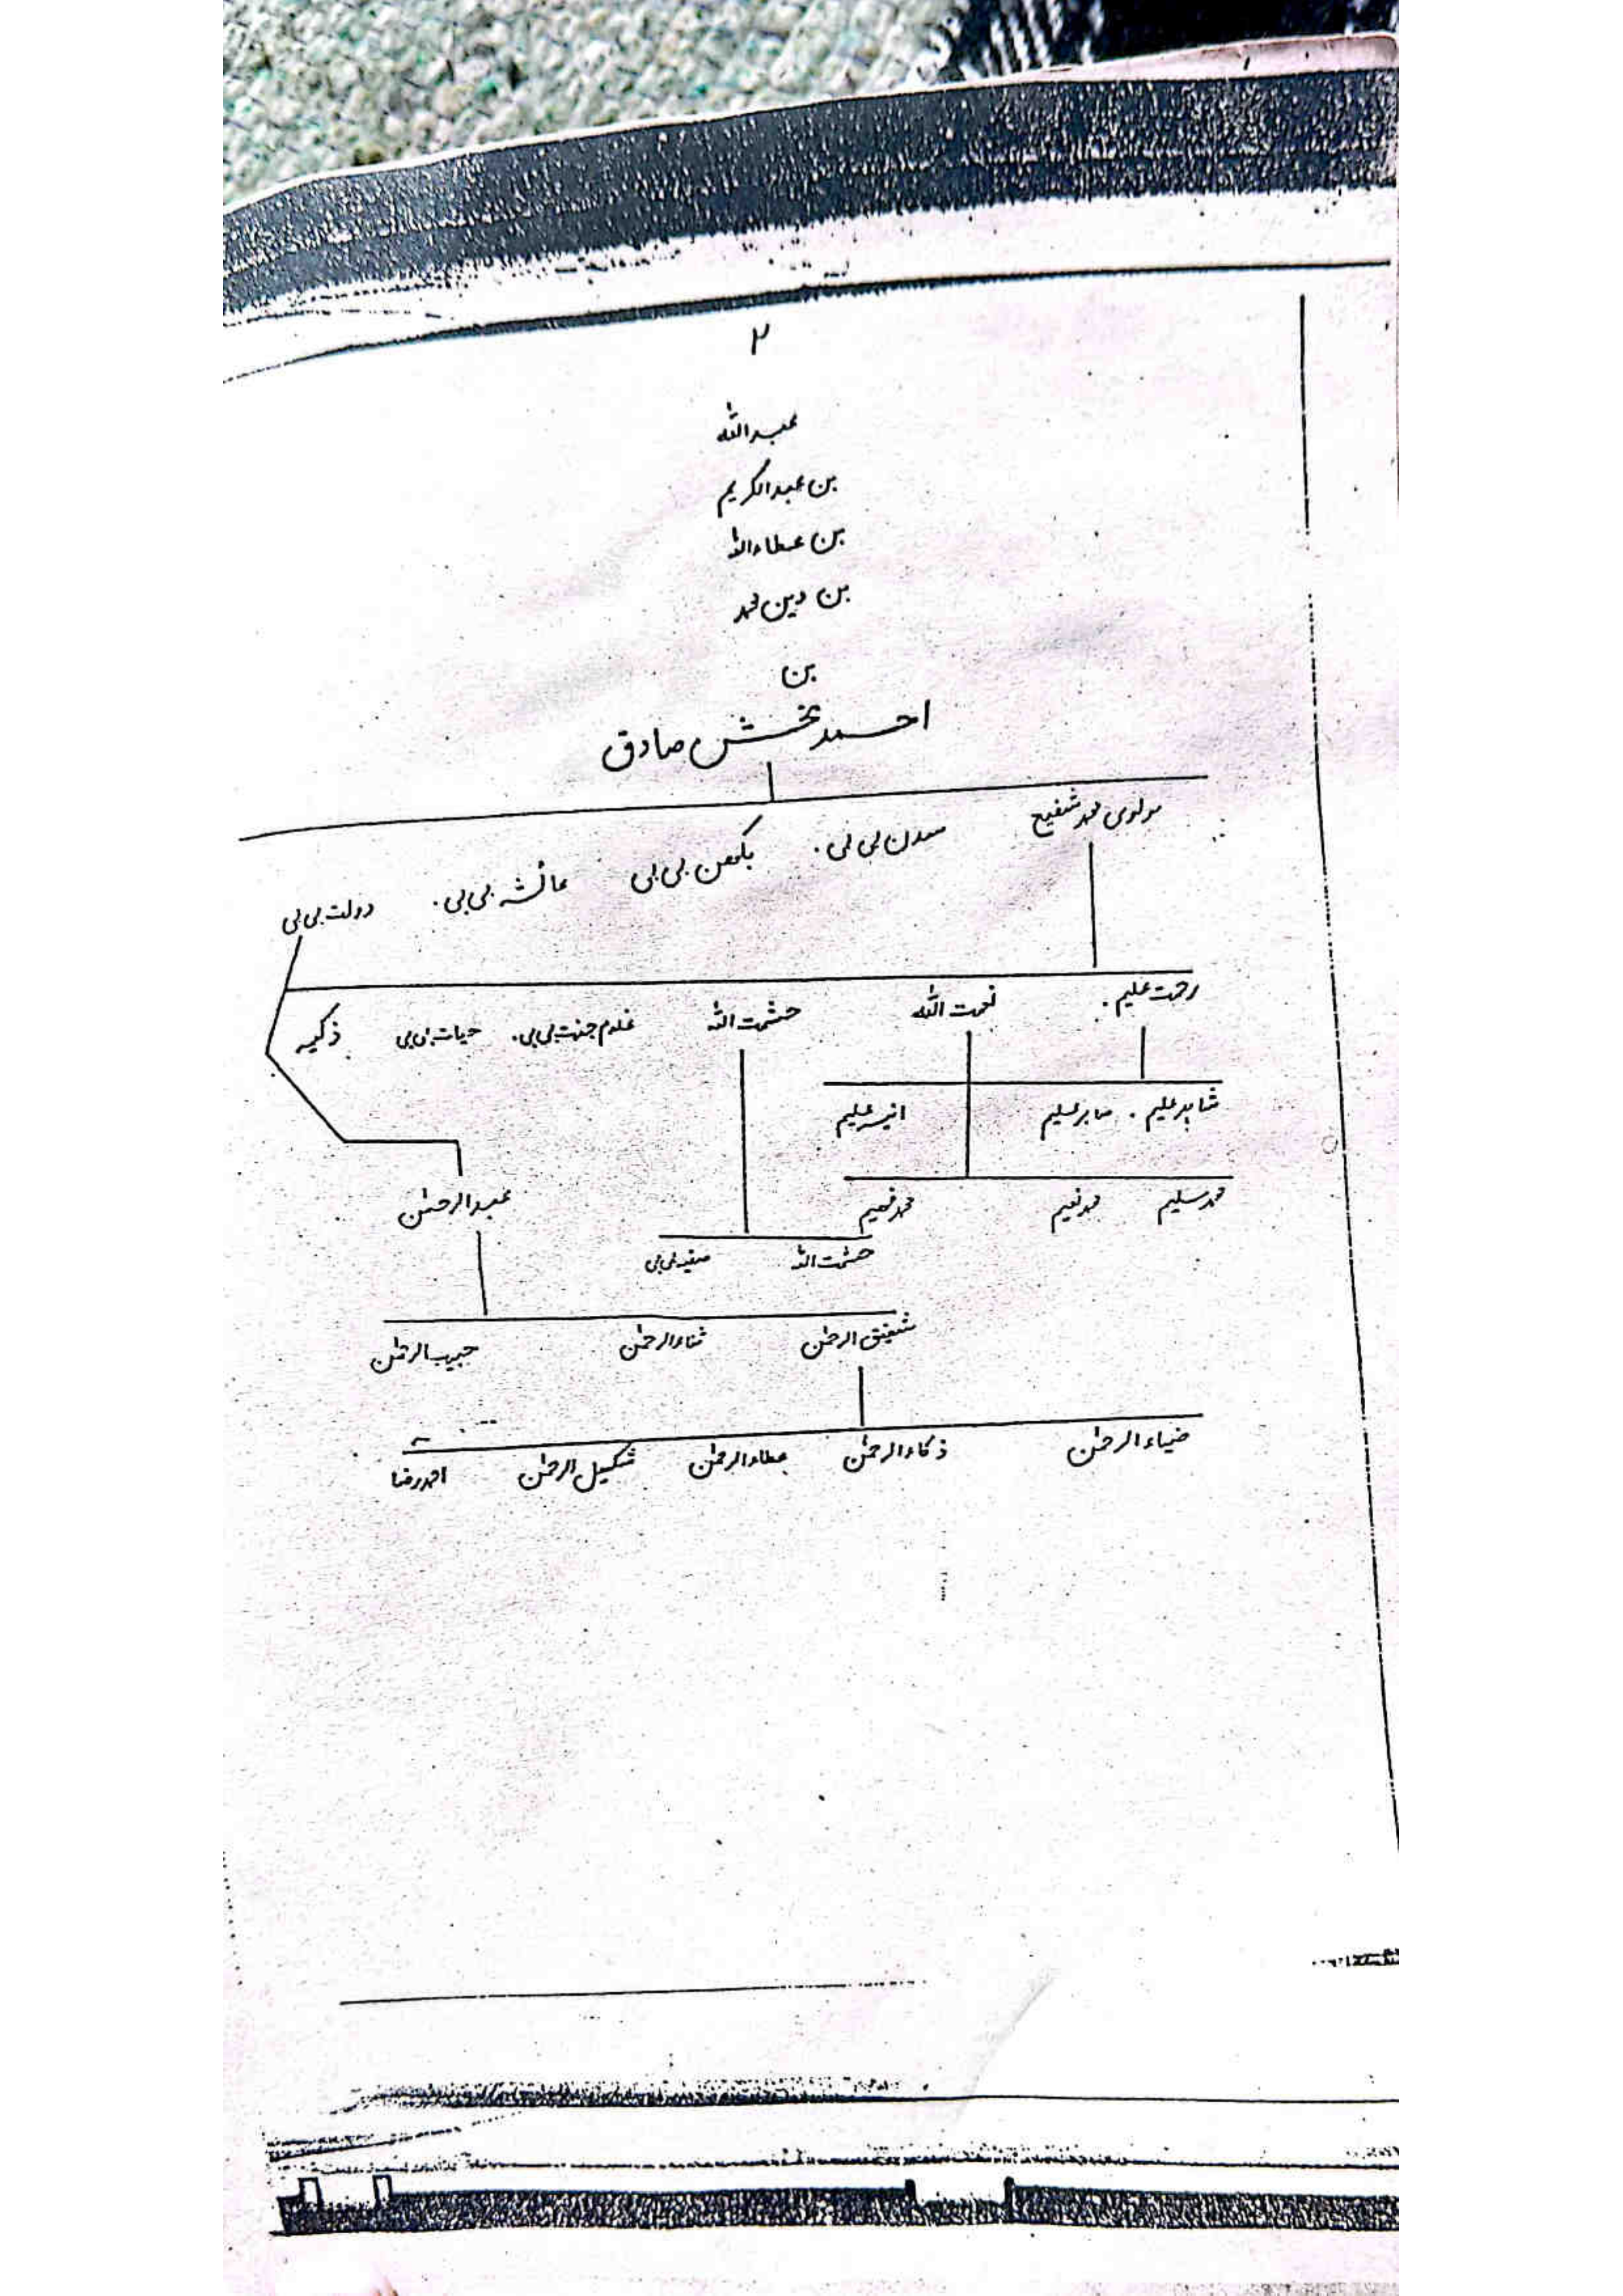 ۲
عبداللہ
بن عبدالکریم
بن عطاءاللہ
بن دین محمد
بن
احمد بخش صادق
مولوی محمد شفیع بی بی. بی بی عائشہ بی بی. دولت بی بی
رحمت علیم. نعمت اللہ حشمت اللہ غلام جنت بی بی. حیات بی بی ذکیہ
شاہد علیم. صابر علیم انیس علیم
محمد سلیم محمد نعیم محمد فہیم
عبدالرحمٰن
حشمت اللہ صفیہ بی بی
شفیق الرحمٰن ثناءالرحمٰن حبیب الرحمٰن
ضیاءالرحمٰن ذکاءالرحمٰن عطاءالرحمٰن شکیل الرحمٰن احمد رضا